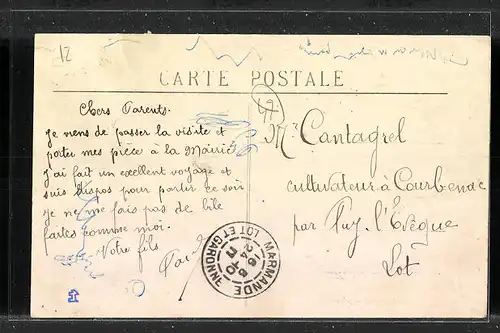 12
CARTE POSTALE
Chers Parents.
je viens de passer la visite et
porter mes pièce à la Mairie
j'ai fait un excellent voyage et
suis dispos pour partir ce soir
je ne me fais pas de bile
faites comme moi.
Votre fils
Mr Cantagrel
cultivateur à Courbenac
par Puy l'Evêque
Lot
MARMANDE
LOT ET GARONNE